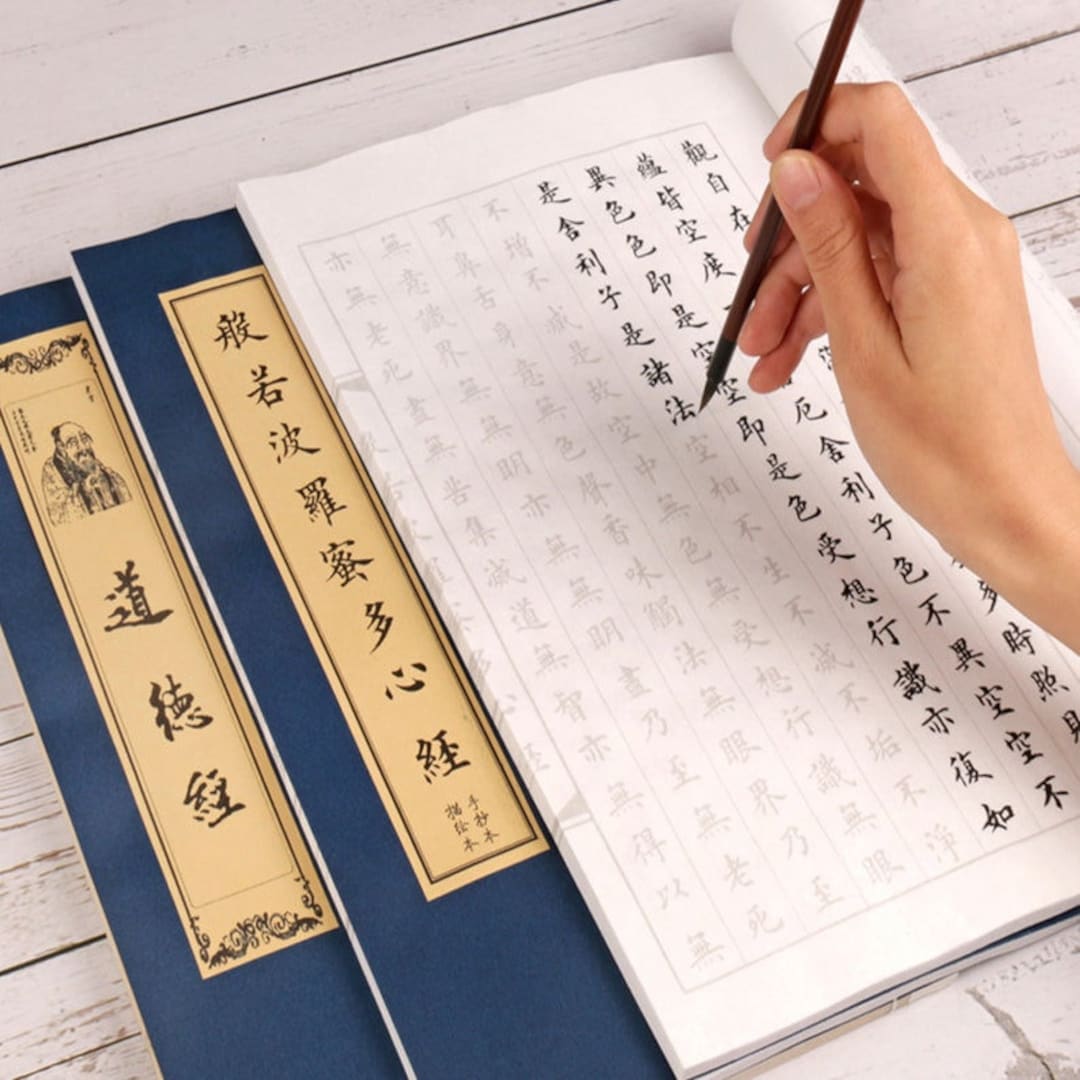 觀自在多時照見
蘊皆空度厄舍利子色不異空空不
異色色即是空空即是色受想行識亦復如
是舍利子是諸法空相不生不滅不垢不淨
不增不減是故空中無色無受想行識無眼
耳鼻舌身意無色聲香味觸法無眼界乃至
無意識界無無明亦無無明盡乃至無老死
亦無老死盡無苦集滅道無智亦無得以無
般若波羅蜜多心經
手抄本
描绘本
道德經